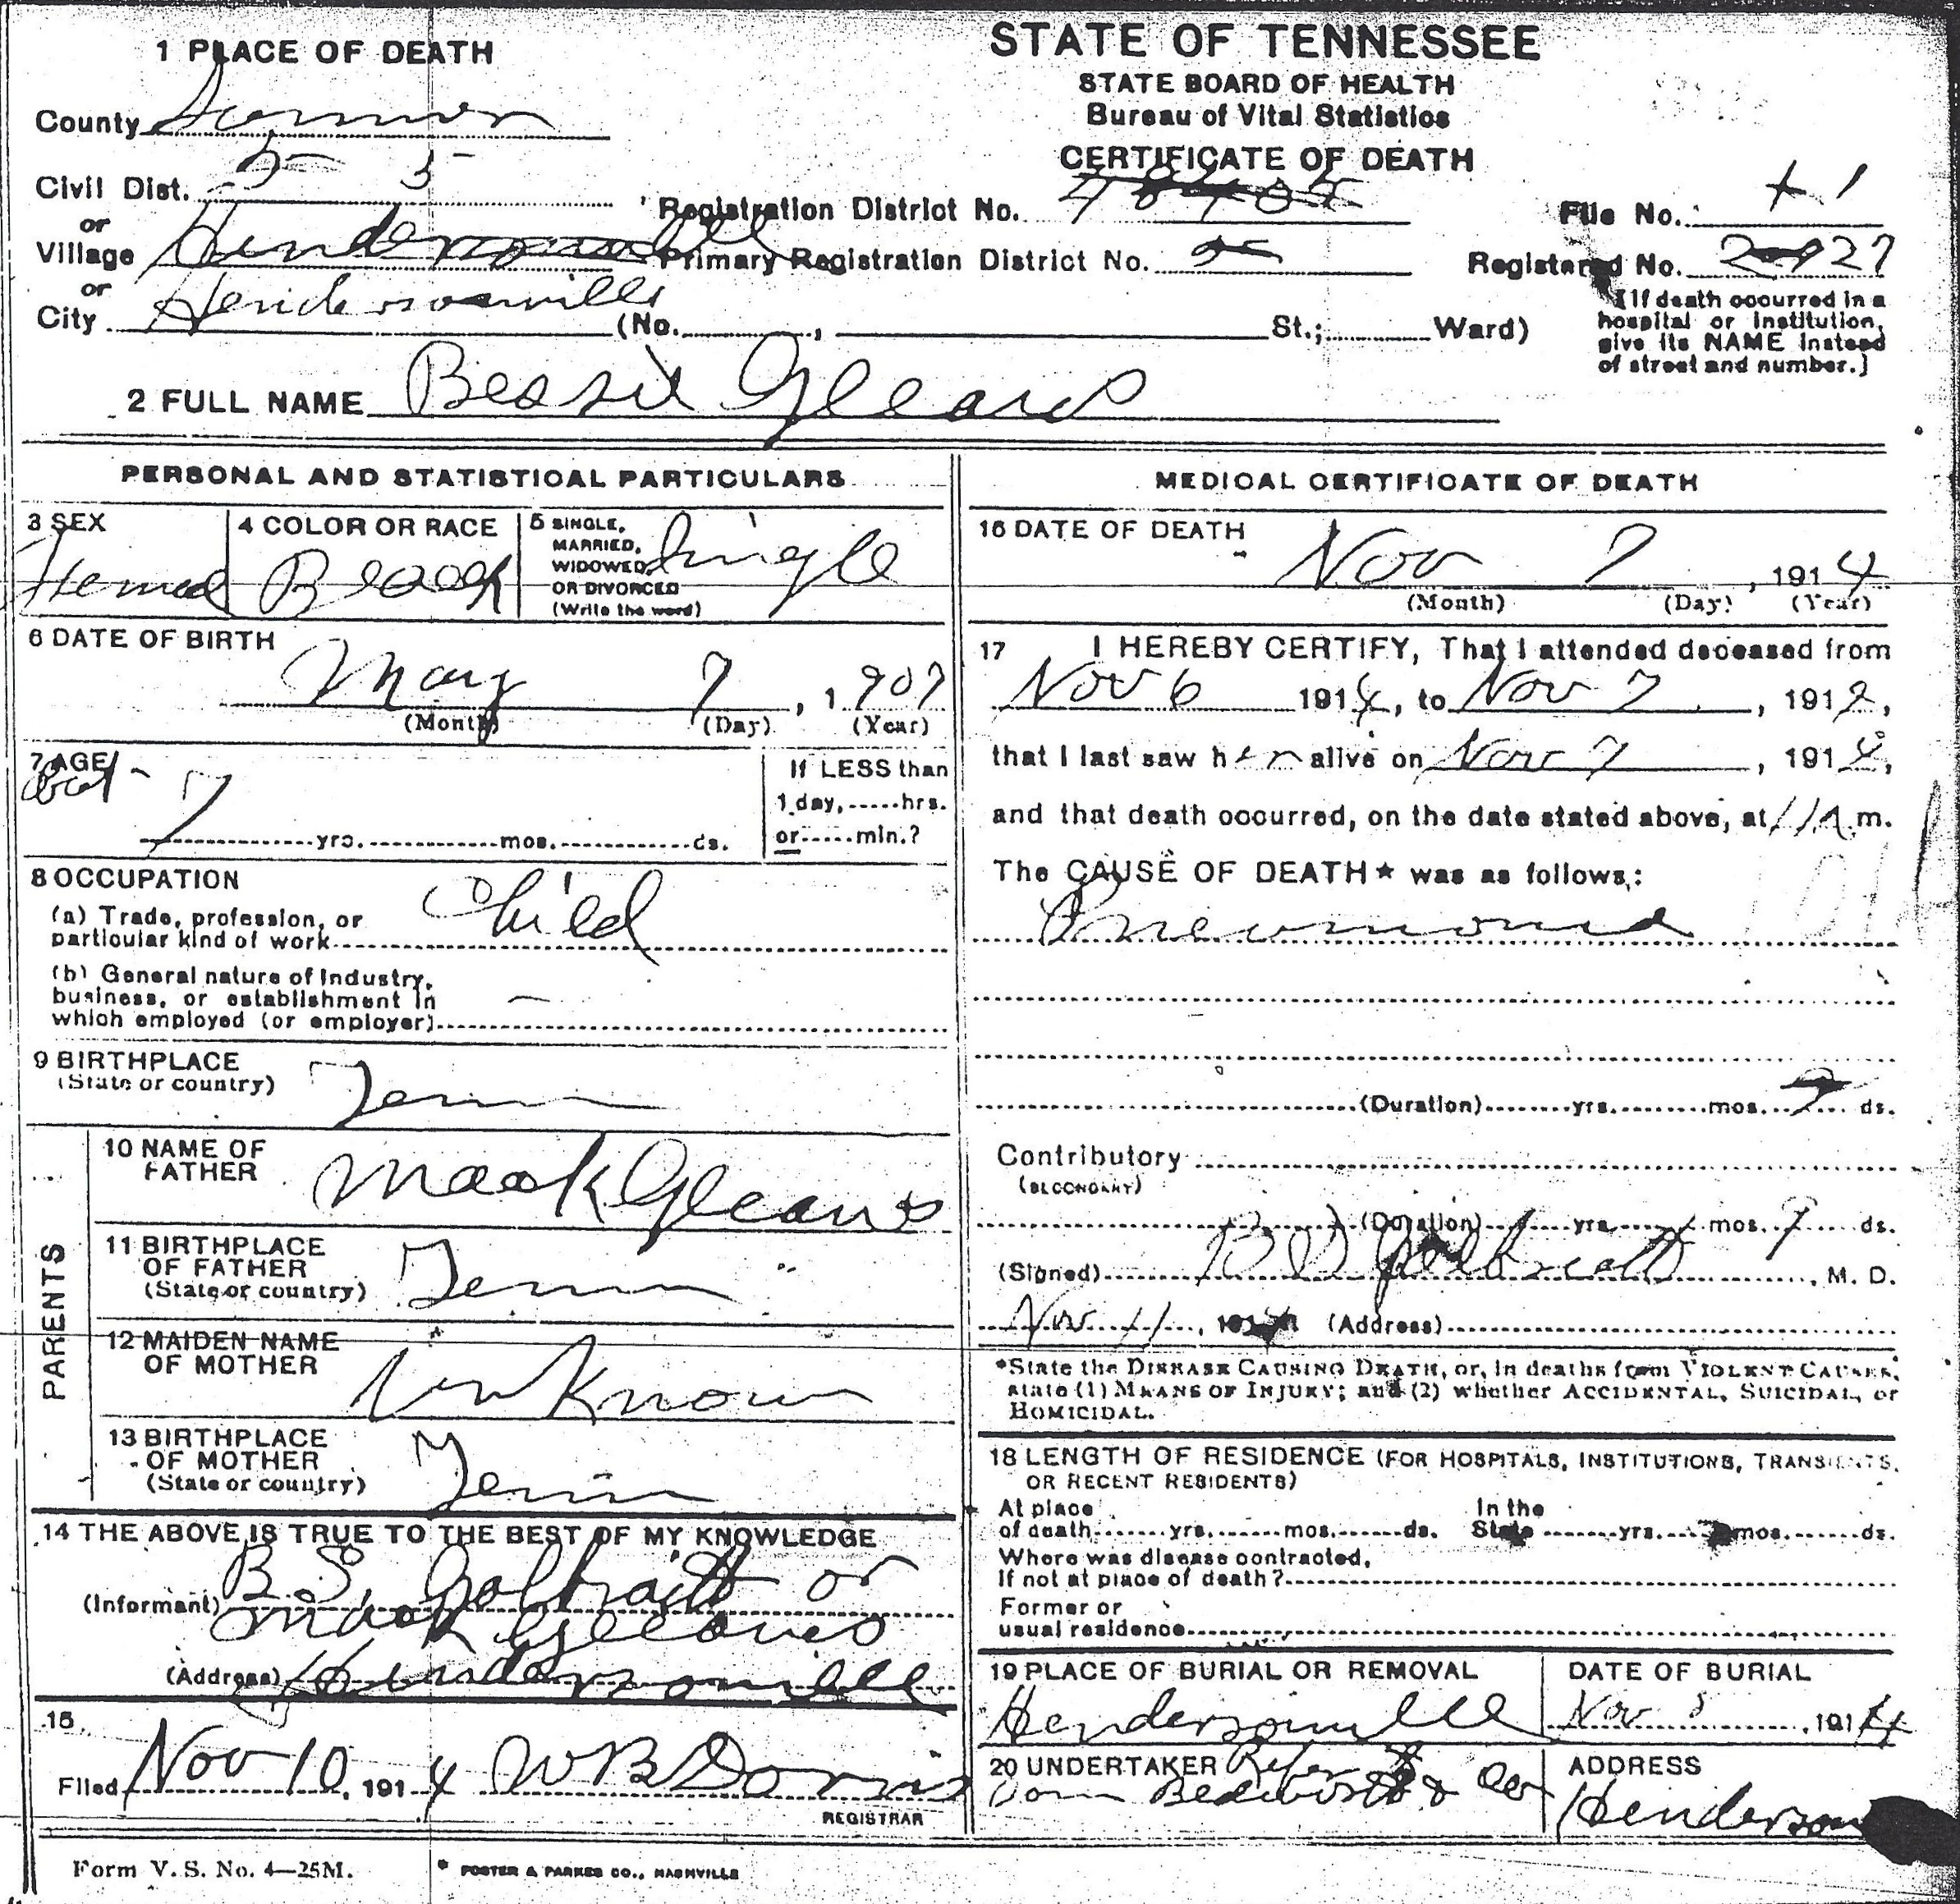 STATE OF TENNESSEE
STATE BOARD OF HEALTH
Bureau of Vital Statistics
CERTIFICATE OF DEATH
1 PLACE OF DEATH
County Sumner
Civil Dist. 5
or
Village Hendersonville
or
City Hendersonville (No. , St.; Ward)
Registration District No.
Primary Registration District No.
File No.
Registered No. 27
[If death occurred in a
hospital or institution,
give its NAME instead
of street and number.]
2 FULL NAME Bessie Gleaves
PERSONAL AND STATISTICAL PARTICULARS
3 SEX
4 COLOR OR RACE Black
5 SINGLE,
MARRIED,
WIDOWED,
OR DIVORCED
(Write the word)
Single
6 DATE OF BIRTH
May 7, 1907
(Month) (Day) (Year)
7 AGE
7 yrs. mos. ds.
If LESS than
1 day, hrs.
or min.?
8 OCCUPATION
(a) Trade, profession, or
particular kind of work Child
(b) General nature of Industry,
business, or establishment in
which employed (or employer) —
9 BIRTHPLACE
(State or country) Tenn
PARENTS
10 NAME OF
FATHER Mack Gleaves
11 BIRTHPLACE
OF FATHER
(State or country) Tenn
12 MAIDEN NAME
OF MOTHER Unknown
13 BIRTHPLACE
OF MOTHER
(State or country) Tenn
14 THE ABOVE IS TRUE TO THE BEST OF MY KNOWLEDGE
(Informant) B S. Galbraith or
Mack Gleaves
(Address) Hendersonville
15
Filed Nov 10, 1914 W B Dorris
REGISTRAR
MEDICAL CERTIFICATE OF DEATH
16 DATE OF DEATH
Nov 7, 1914
(Month) (Day) (Year)
17 I HEREBY CERTIFY, That I attended deceased from
Nov 6 1914, to Nov 7, 191
that I last saw her alive on Nov 7, 1914,
and that death occurred, on the date stated above, at 11 A m.
The CAUSE OF DEATH* was as follows:
Pneumonia
(Duration) yrs. mos. ds.
Contributory
(SECONDARY)
(Duration) yrs. mos. ds.
(Signed) B S Galbraith, M. D.
Nov 11, 191 (Address)
*State the DISEASE CAUSING DEATH, or, in deaths from VIOLENT CAUSES,
state (1) MEANS OF INJURY; and (2) whether ACCIDENTAL, SUICIDAL, or
HOMICIDAL.
18 LENGTH OF RESIDENCE (FOR HOSPITALS, INSTITUTIONS, TRANSIENTS,
OR RECENT RESIDENTS)
At place
of death yrs. mos. ds.
In the
State yrs. mos. ds.
Where was disease contracted,
If not at place of death?
Former or
usual residence
19 PLACE OF BURIAL OR REMOVAL
Hendersonville
DATE OF BURIAL
Nov 8, 1914
20 UNDERTAKER
ADDRESS
Henderson
Form V. S. No. 4—25M.
FOSTER & PARKES CO., NASHVILLE